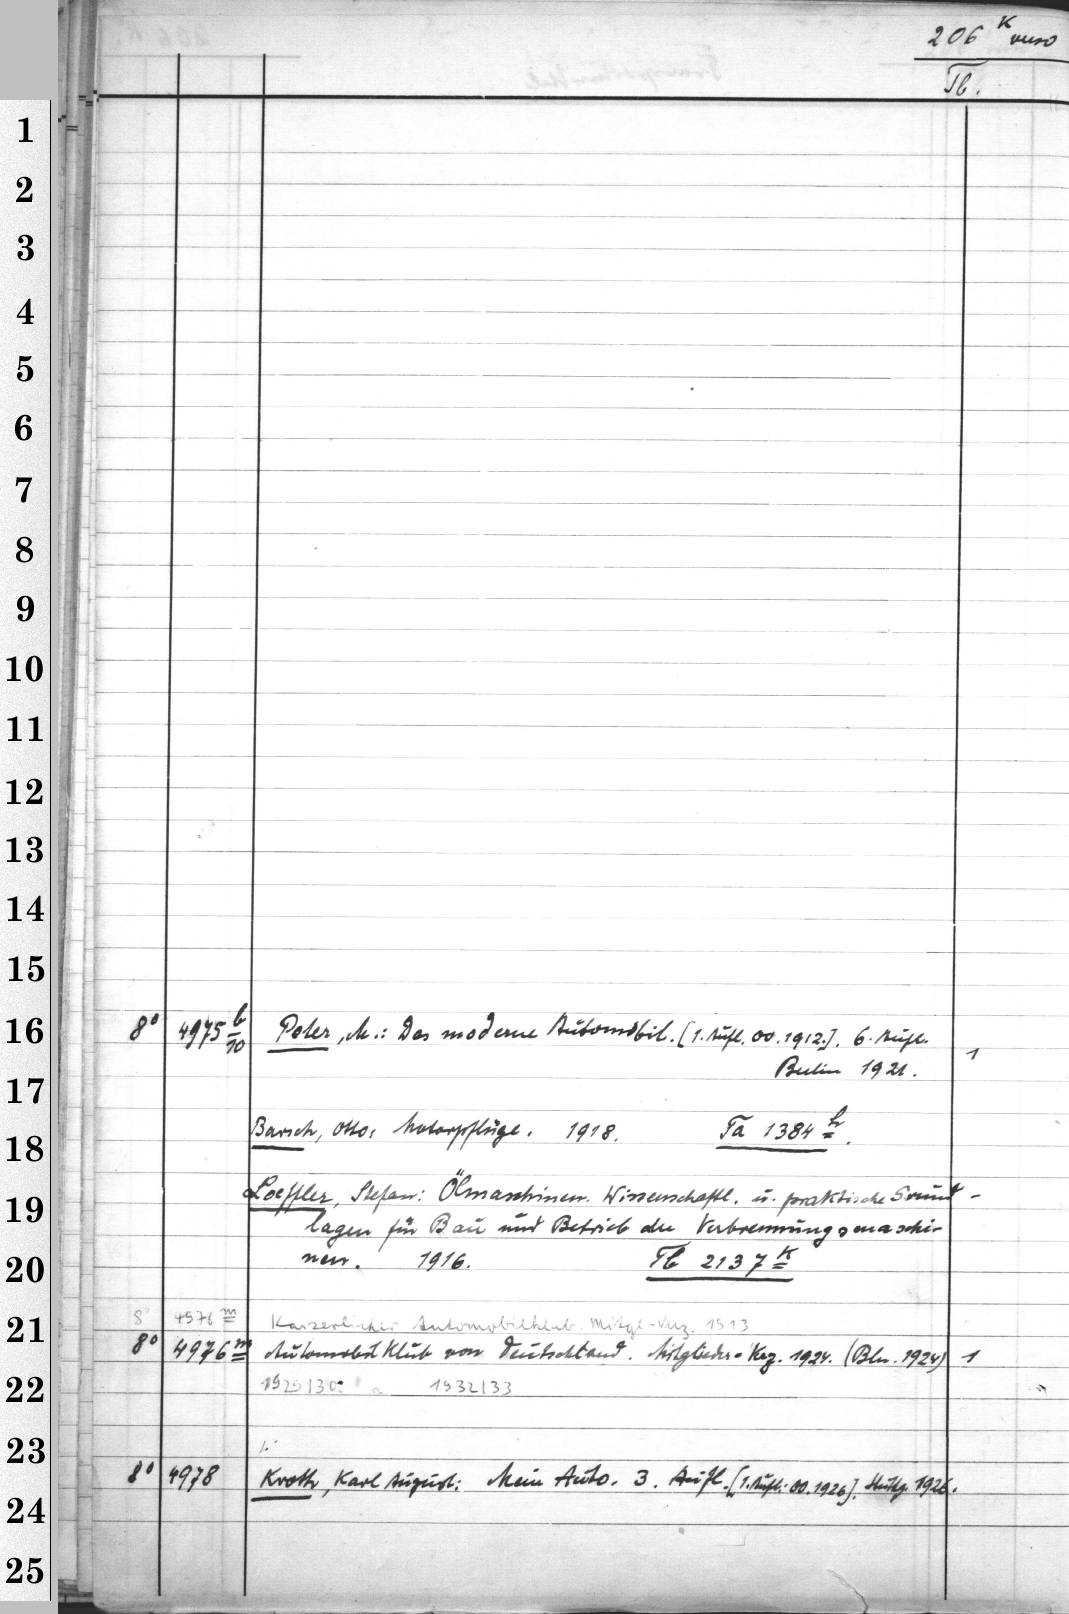 206 K verso
Tb.
8° 4975 b/10 Peter, M.: Das moderne Automobil. [1. Aufl. OO. 1912.]. 6. Aufl.
Berlin 1921. 1
Barsch, Otto: Motorpflüge. 1918. Ta 1384 h.
Loeffler, Stefan: Ölmaschinen. Wissenschaftl. u. praktische Grund-
lagen für Bau und Betrieb der Verbrennungsmaschi-
nen. 1916. Tb 2137 K
8° 4976 m Kaiserlicher Automobilklub. Mitgl-Verz. 1913
8° 4976 m Automobil Klub von Deutschland. Mitglieder-Verz. 1924. (Bln. 1924) 1
1929/30 1932/33
8° 4978 Kroth, Karl August: Mein Auto. 3. Aufl. [1. Aufl: OO. 1926]. Stuttg. 1926.
1
2
3
4
5
6
7
8
9
10
11
12
13
14
15
16
17
18
19
20
21
22
23
24
25